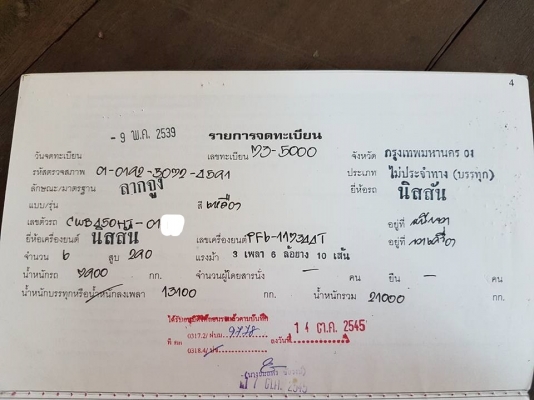 4
- 9 พ.ค. 2539 รายการจดทะเบียน
วันจดทะเบียน เลขทะเบียน -5000 จังหวัด กรุงเทพมหานคร 01
รหัสตรวจสภาพ 01-0192-3072-4591 ประเภท ไม่ประจำทาง (บรรทุก)
ลักษณะ/มาตรฐาน ลากจูง ยี่ห้อรถ นิสสัน
แบบ/รุ่น สี เหลือง
เลขตัวรถ CWB450HT-01 อยู่ที่
ยี่ห้อเครื่องยนต์ นิสสัน เลขเครื่องยนต์ อยู่ที่
จำนวน 6 สูบ 290 แรงม้า 3 เพลา 6 ล้อยาง 10 เส้น
น้ำหนักรถ 7900 กก. จำนวนผู้โดยสารนั่ง - คน ยืน - คน
น้ำหนักบรรทุกหรือน้ำหนักลงเพลา 13100 กก. น้ำหนักรวม 21000 กก.
ที่ คค 0317.2/ 9778 ลงวันที่ 14 ต.ค. 2545
0318.4/